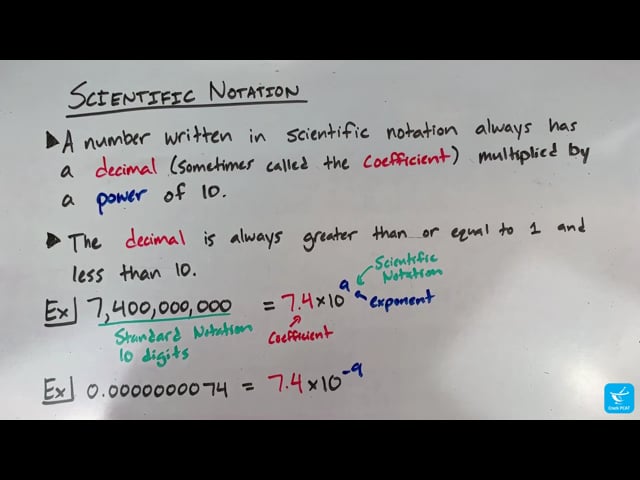 SCIENTIFIC NOTATION
▶A number written in scientific notation always has
a decimal (sometimes called the coefficient) multiplied by
a power of 10.
▶ The decimal is always greater than or equal to 1 and
less than 10.
Scientific
Notation
Ex 7,400,000,000 = 7.4×10⁹
exponent
Standard Notation
10 digits
Coefficient
Ex 0.0000000074 = 7.4×10⁻⁹
Crash PCAT